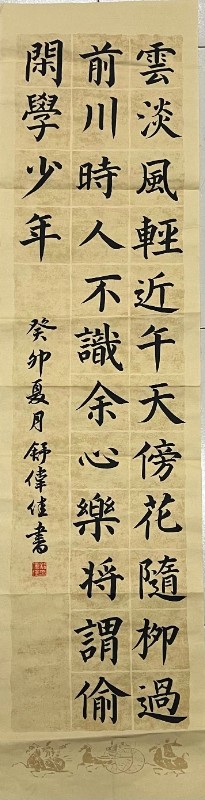 雲淡風輕近午天傍花隨柳過
前川時人不識余心樂將謂偷
閑學少年
癸卯夏月舒偉佳書